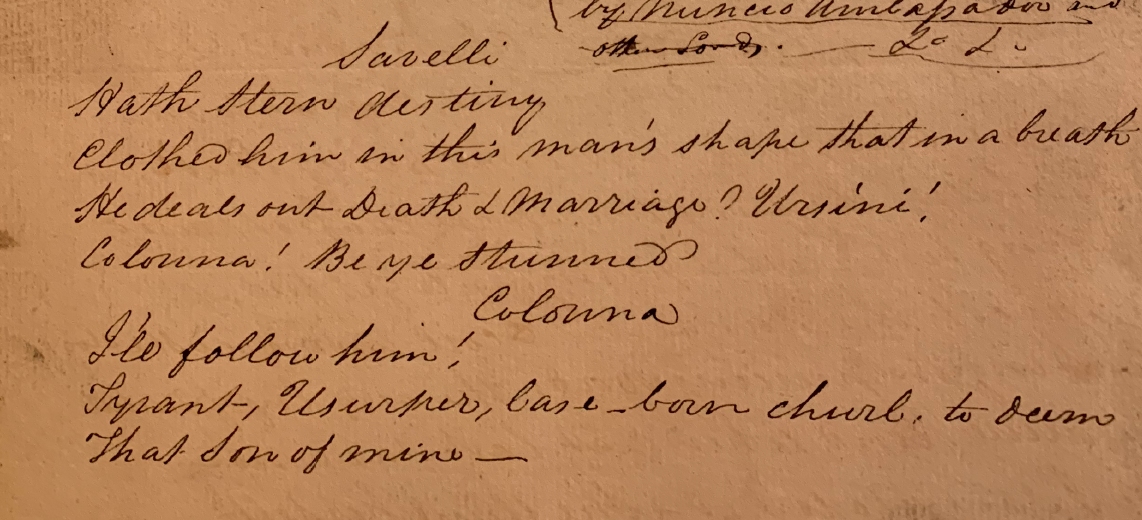 (by Nuncio Ambassador and
other Lords. — 2d L.
Savelli
Hath stern destiny
Clothed him in this man's shape that in a breath
He deals out Death & Marriage? Ursini!
Colonna! Be ye stunned
Colonna
I'le follow him!
Tyrant, Usurper, base-born churl, to deem
That Son of mine —